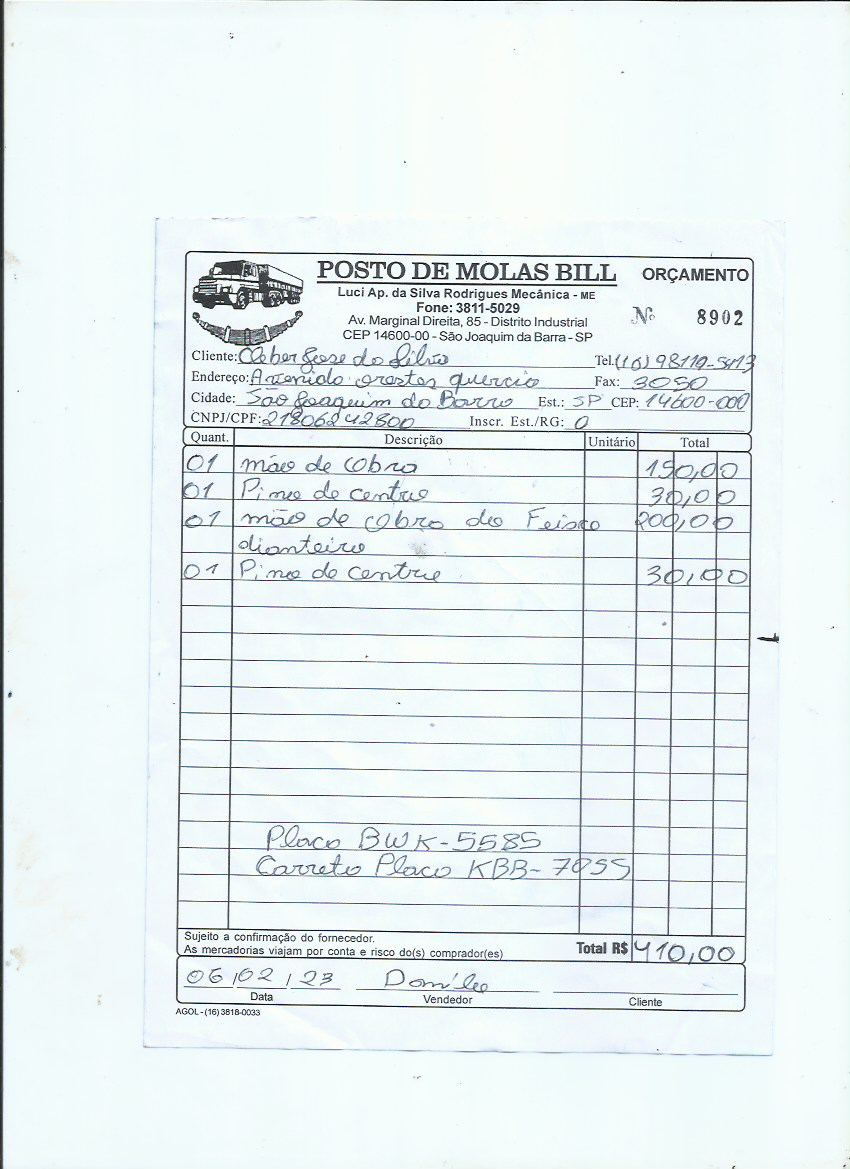 POSTO DE MOLAS BILL ORÇAMENTO
Luci Ap. da Silva Rodrigues Mecânica - ME
Fone: 3811-5029
Nº 8902
Av. Marginal Direita, 85 - Distrito Industrial
CEP 14600-00 - São Joaquim da Barra - SP
Cliente: Cleber Jose da Silva Tel. (16) 98119-
Endereço: Avenida orestes quercia Fax: 3050
Cidade: São Joaquim da Barra Est.: SP CEP: 14600-000
CNPJ/CPF: 21806242800 Inscr. Est./RG: 0
Quant. Descrição Unitário Total
01 mão de obra 150,00
01 Pino de centro 30,00
01 mão de obra do Feixo 200,00
dianteiro
01 Pino de centro 30,00
Placa BWK-5585
Carreto Placa KBB-7055
Sujeito a confirmação do fornecedor.
As mercadorias viajam por conta e risco do(s) comprador(es) Total R$ 410,00
06/02/23 Danilo
Data Vendedor Cliente
AGOL - (16) 3818-0033